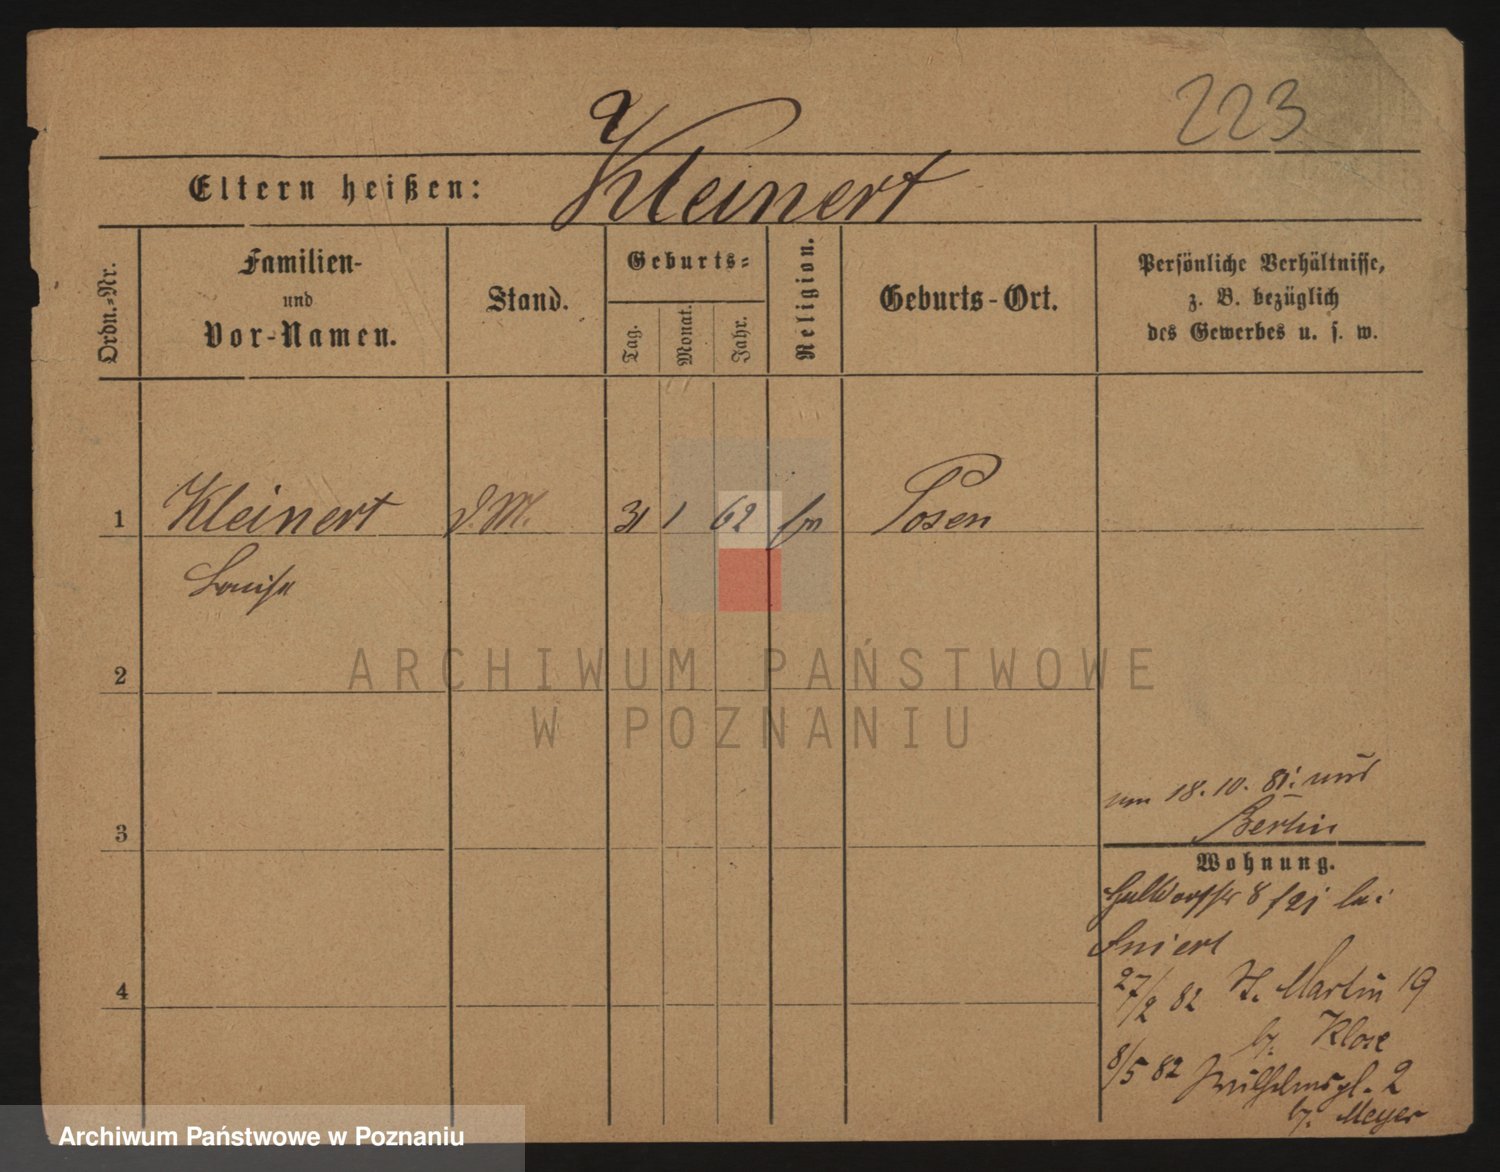 223
Eltern heißen: Kleinert
Ordn.-Nr.
Familien-
und
Vor-Namen.
Stand.
Geburts-
Tag.
Monat.
Jahr.
Religion.
Geburts-Ort.
Persönliche Verhältnisse,
z. B. bezüglich
des Gewerbes u. s. w.
1 Kleinert D.M. 31 1 62 Posen
Louise
2
3
4
18.10.81. aus
Berlin
Wohnung.
Halbdorfstr 8 bei
27/2 82 St. Martin 19
b. Klose
8/5 82 Wilhelmspl. 2
b. Meyer
ARCHIWUM PAŃSTWOWE
W POZNANIU
Archiwum Państwowe w Poznaniu